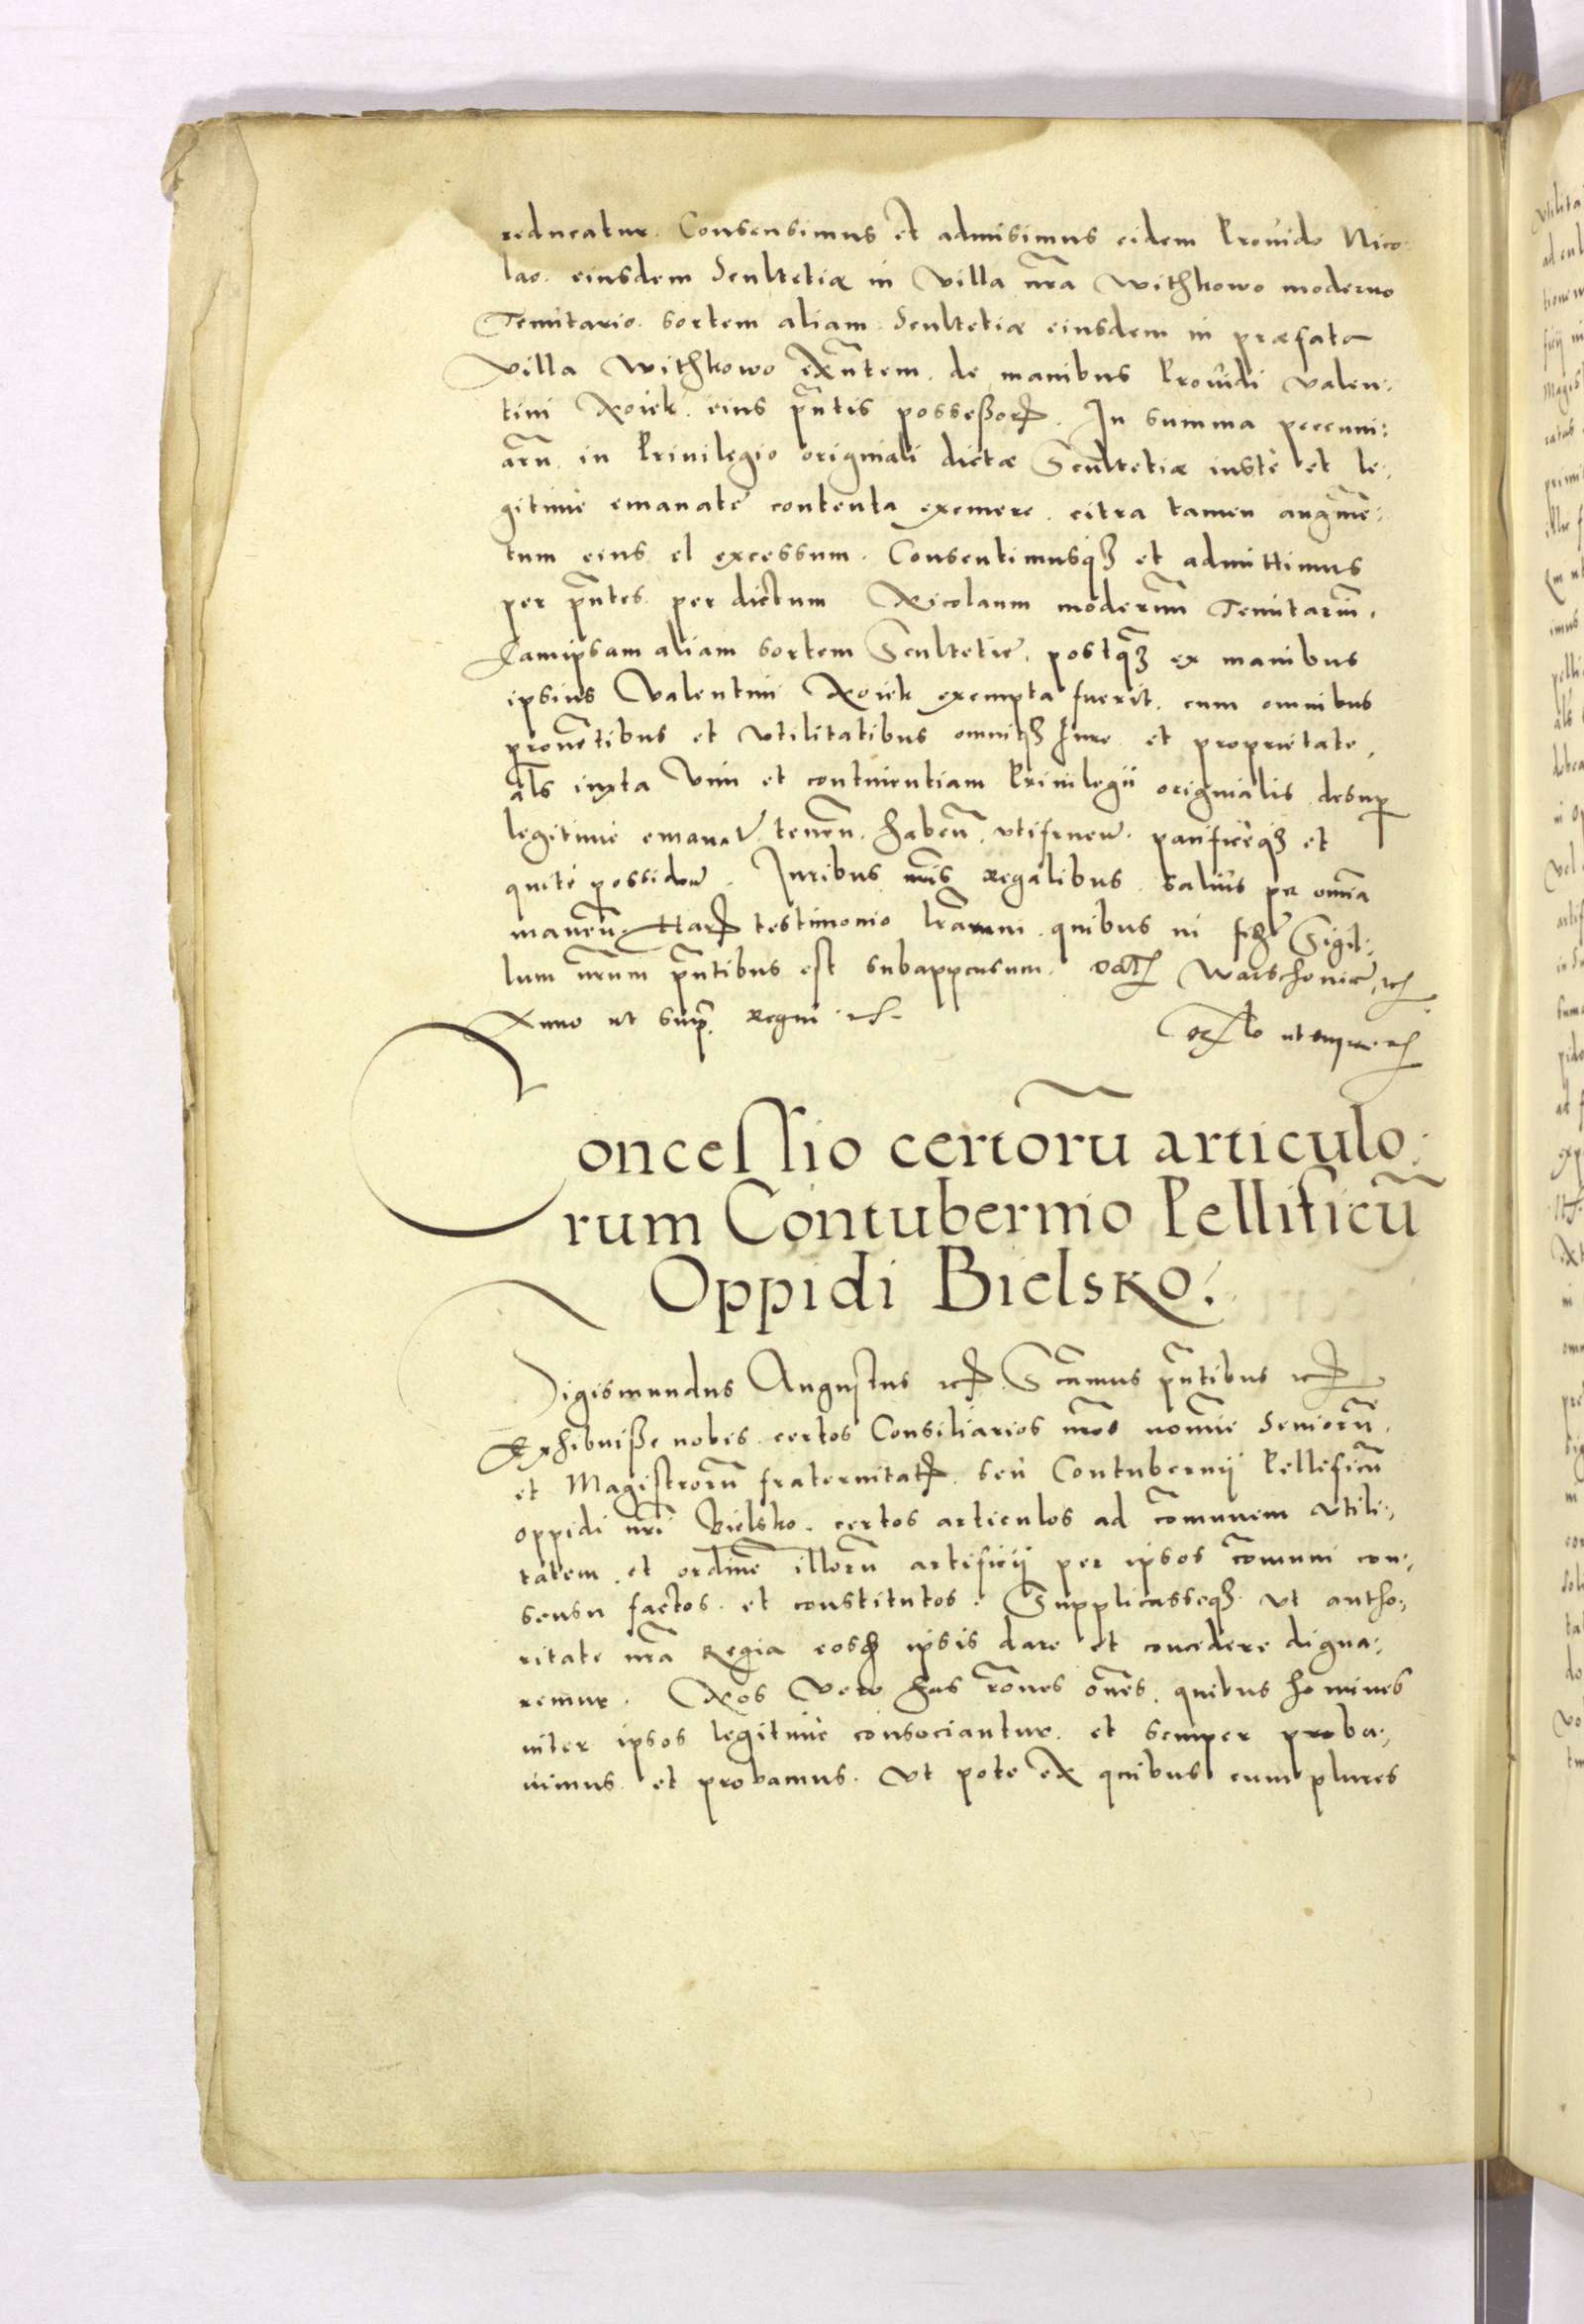 reducatur. Consensimus et admisimus eidem Prouido Nico:
lao. eiusdem Scultetiæ in Villa nr̃a Withkowo moderno
Tenutario. sortem aliam. Scultetiæ eiusdem in præfata
Villa Withkowo exñtem. de manibus Prouidi Valen:
tini eius pñtis possessoris. In summa peccuni:
arũ in Priuilegio originali dictæ Scultetiæ iustè et le:
gitime emanatæ contenta exemere. citra tamen augmẽ:
tum eius et excessum. Consentimusq3 et admittimus
per pñtes. per dictum Nicolaum modernũ Tenutariũ.
Eamipsam aliam sortem Scultetiæ. postq̃3 ex manibus
ipsius Valentini exempta fuerit. cum omnibus
prouẽtibus et Vtilitatibus omniq3 Iure et proprietate,
als iuxta Vim et continentiam Priuilegii originalis desup
legitime emanat. teneñ. habeñ. vtifrueñ. pacificeq3 et
quiete possideñ. Iuribus nr̃is regalibus. saluis per omĩa
maneñ. Harũ testimonio lr̃arum. quibus in fidẽ Sigil:
lum nr̃um pñtibus est subappensum. Dat Warschouiæ, etc.
Anno ut sup. Regni etc.
ut supra. etc.
Concessio certorũ articulo:
rum Contubernio Pellificũ
Oppidi Bielsko.
Sigismundus Augustus etc. S cãmus pñtibus etc.
Exhibuisse nobis. certos Consiliarios nr̃os noĩe Seniorũ.
et Magistrorũ fraternitatis. seu Contubernij Pellificũ
oppidi nr̃i Bielsko. certos articulos ad cõmunem Vtili:
tatem. et ordinẽ illorũ artificij per ipsos cõmuni con:
sensu factos. et constitutos. Supplicasseq3. Vt autho:
ritate nr̃a Regia eosd ipsis dare et concedere digna:
remur. Nos Vero has rõnes om̃es. quibus homines
inter ipsos legitime consociantur. et semper proba:
uimus. et probamus. Vt pote ex quibus cum plures